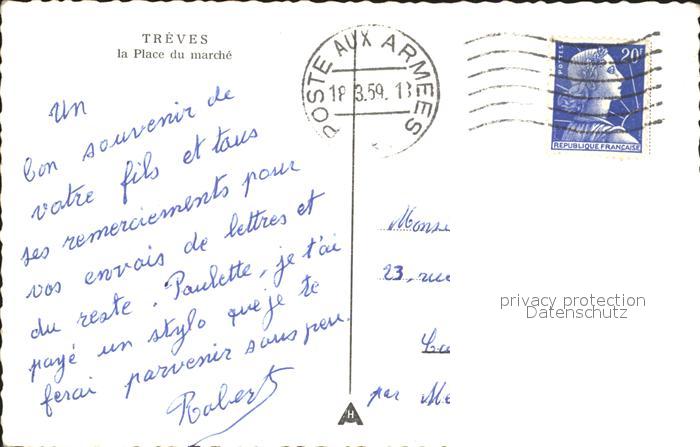 TRÈVES
la Place du marché
POSTE AUX ARMEES
18 3.59. 13
20F
POSTES
REPUBLIQUE FRANÇAISE
Un
bon souvenir de
votre fils et tous
ses remerciements pour
vos envois de lettres et
du reste. Paulette, je t'ai
payé un stylo que je te
ferai parvenir sous peu.
Robert
Monsi
23, rue
par Me
H
privacy protection
Datenschutz